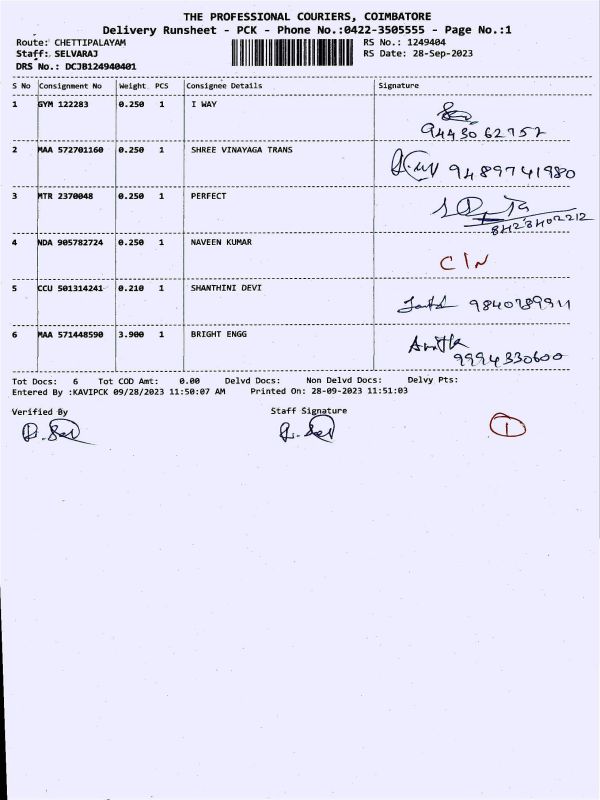 THE PROFESSIONAL COURIERS, COIMBATORE
Delivery Runsheet - PCK - Phone No.:0422-3505555 - Page No.:1
Route: CHETTIPALAYAM RS No.: 1249404
Staff: SELVARAJ RS Date: 28-Sep-2023
DRS No.: DCJB124940401
S No Consignment No Weight PCS Consignee Details Signature
1 GYM 122283 0.250 1 I WAY
2 MAA 572701160 0.250 1 SHREE VINAYAGA TRANS 9489741980
3 MTR 2370048 0.250 1 PERFECT
4 NDA 905782724 0.250 1 NAVEEN KUMAR C/N
5 CCU 501314241 0.210 1 SHANTHINI DEVI
6 MAA 571448590 3.900 1 BRIGHT ENGG
9994330600
Tot Docs: 6 Tot COD Amt: 0.00 Delvd Docs: Non Delvd Docs: Delvy Pts:
Entered By :KAVIPCK 09/28/2023 11:50:07 AM Printed On: 28-09-2023 11:51:03
Verified By Staff Signature
1